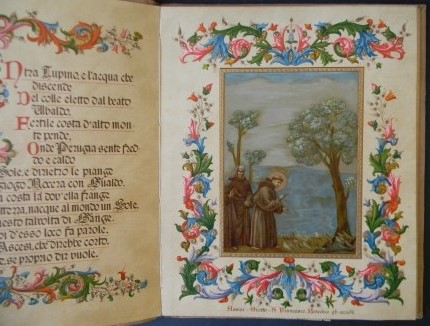 Ntra Tupino, e l'acqua che
discende
Del colle eletto dal beato
Ubaldo,
Fertile costa d'alto mon-
te pende,
Onde Perugia sente fred-
do e caldo
Sole, e dirietro le piange
giogo Nocera con Gualdo.
costa là dov'ella frange
rattezza, nacque al mondo un Sole,
questo talvolta di Gange.
d'esso loco fa parole,
Ascesi, chè direbbe corto,
se proprio dir vuole.
Giotto - S. Francesco
gli uccelli